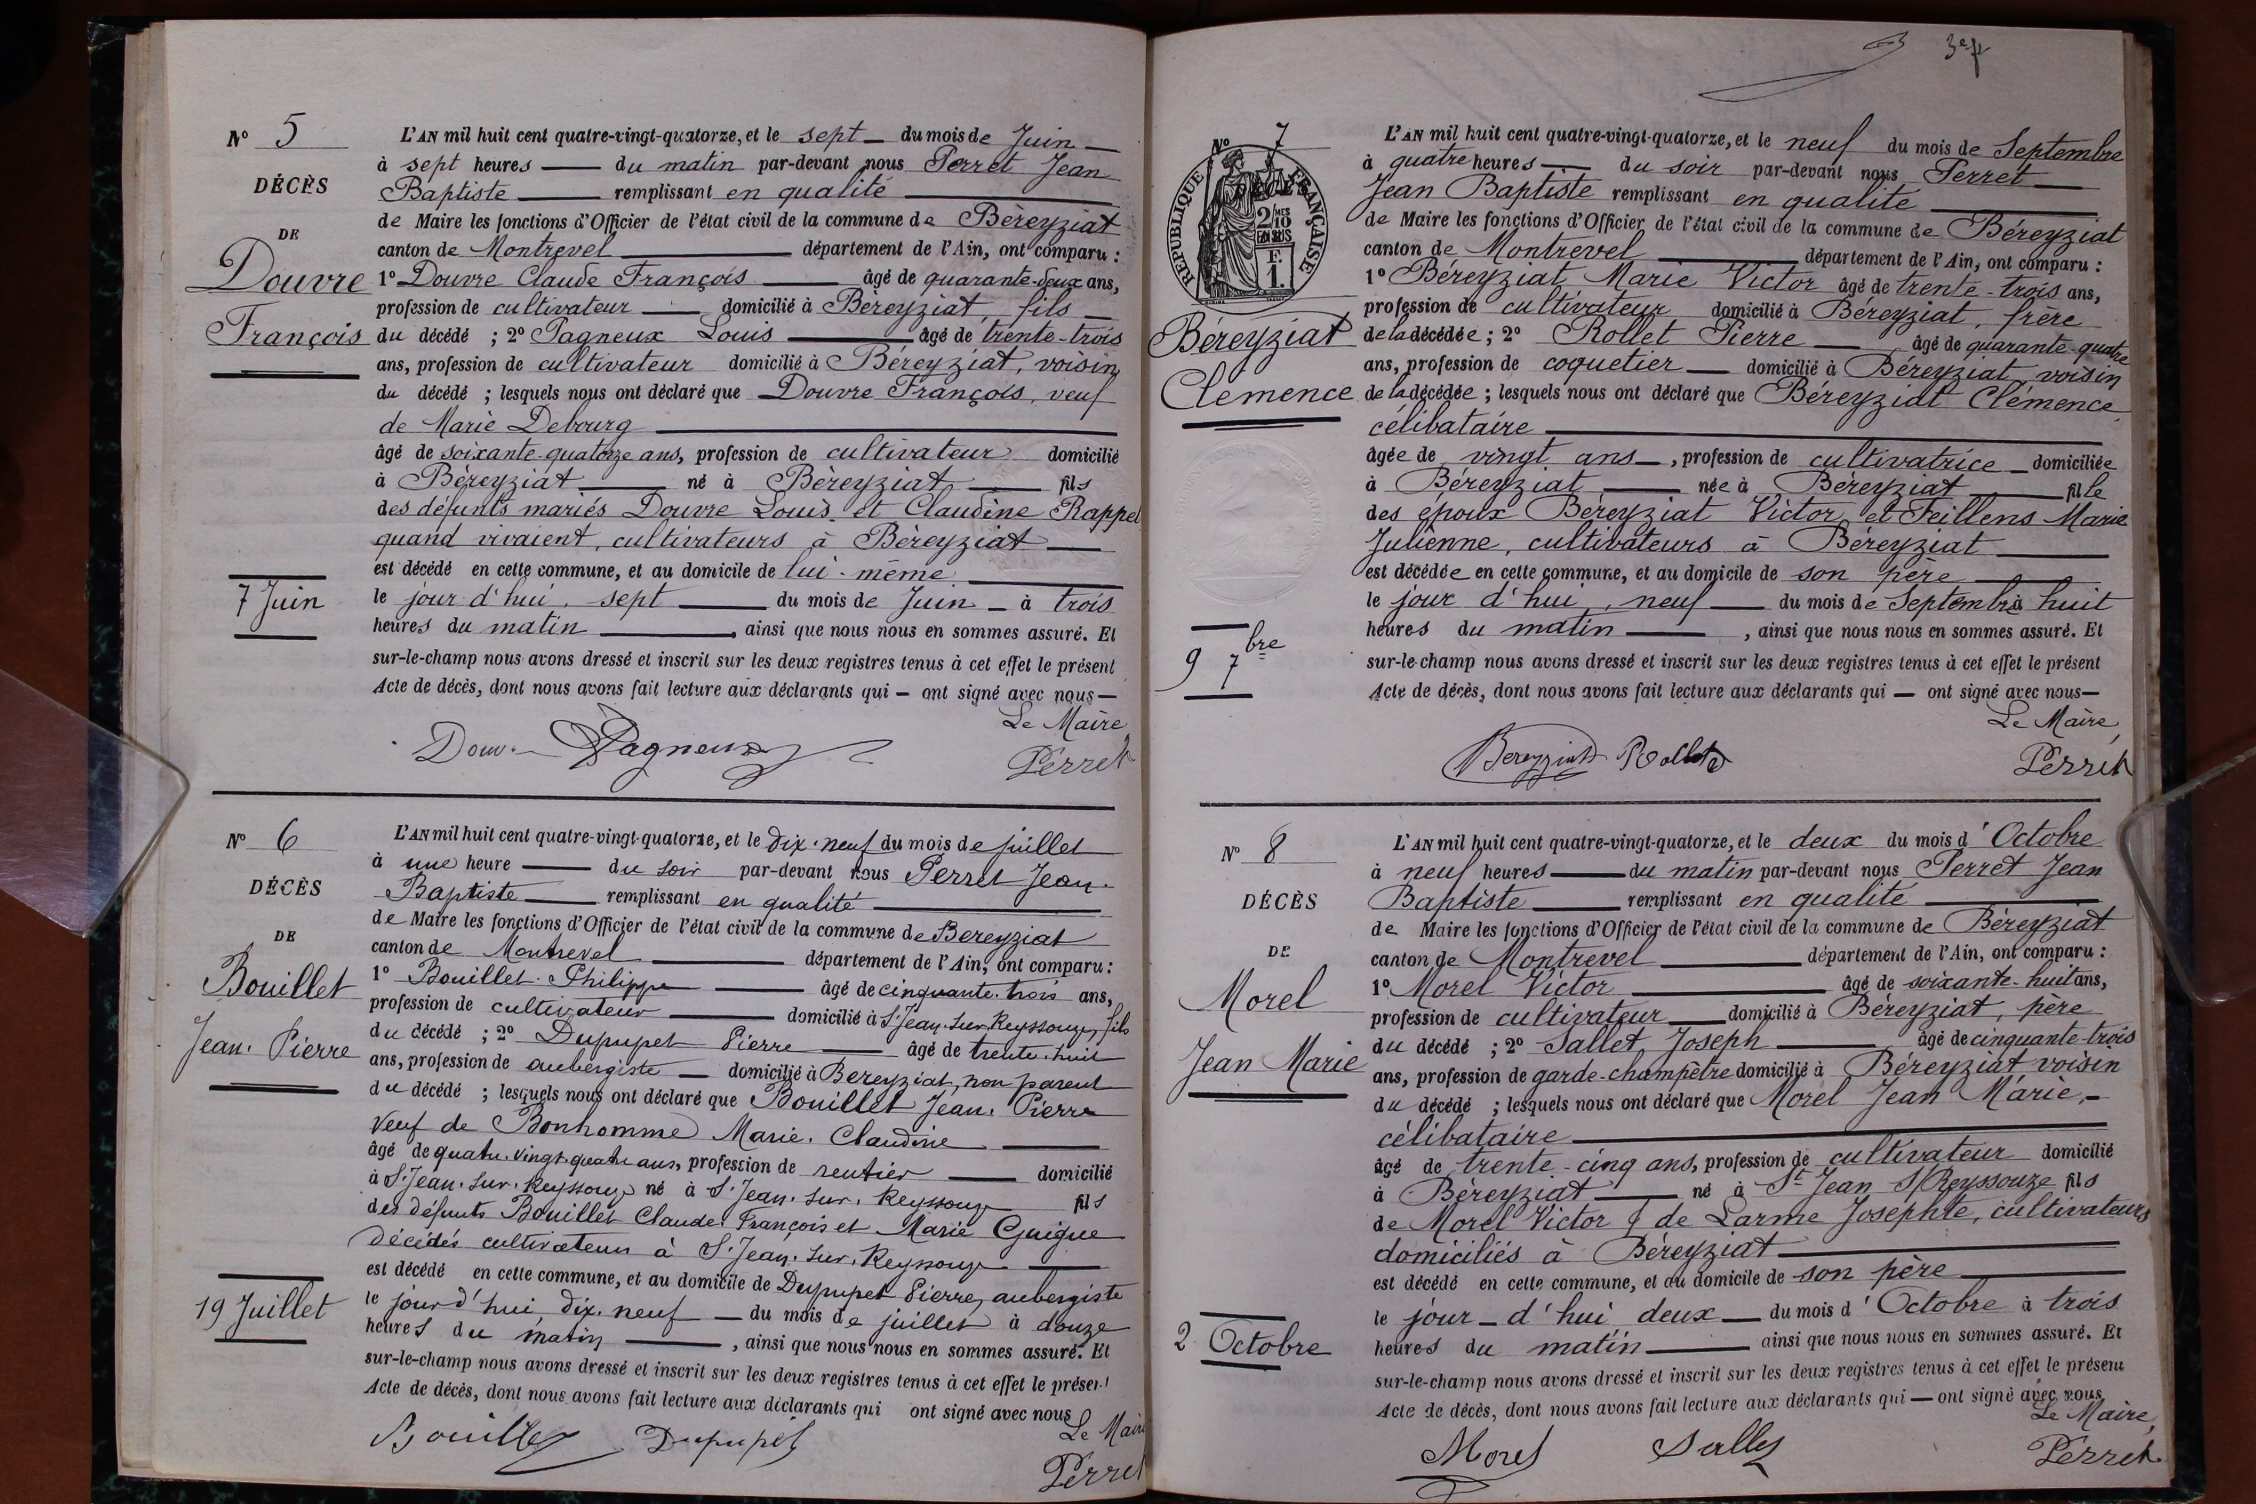 N° 5
DÉCÈS
DE
Douvre
François
7 Juin
L'AN mil huit cent quatre-vingt-quatorze, et le sept — du mois de Juin —
à sept heures — du matin par-devant nous Perret Jean
Baptiste — remplissant en qualité —
de Maire les fonctions d'Officier de l'état civil de la commune de Béreyziat
canton de Montrevel — département de l'Ain, ont comparu :
1° Douvre Claude François — âgé de quarante-deux ans,
profession de cultivateur — domicilié à Béreyziat, fils —
du décédé ; 2° Pagneux Louis — âgé de trente-trois
ans, profession de cultivateur domicilié à Béreyziat, voisin
du décédé ; lesquels nous ont déclaré que Douvre François, veuf
de Marie Debourg —
âgé de soixante-quatorze ans, profession de cultivateur domicilié
à Béreyziat — né à Béreyziat — fils
des défunts mariés Douvre Louis et Claudine Rappel
quand vivaient, cultivateurs à Béreyziat —
est décédé en cette commune, et au domicile de lui-même —
le jour d'hui, sept — du mois de Juin — à trois
heures du matin —, ainsi que nous nous en sommes assuré. Et
sur-le-champ nous avons dressé et inscrit sur les deux registres tenus à cet effet le présent
Acte de décès, dont nous avons fait lecture aux déclarants qui — ont signé avec nous —
Le Maire
Douv. Pagneux Perret
N° 6
DÉCÈS
DE
Bouillet
Jean. Pierre
19 Juillet
L'AN mil huit cent quatre-vingt-quatorze, et le dix-neuf du mois de juillet
à une heure — du soir par-devant nous Perret Jean.
Baptiste — remplissant en qualité —
de Maire les fonctions d'Officier de l'état civil de la commune de Bereyziat
canton de Montrevel — département de l'Ain, ont comparu :
1° Bouillet Philippe — âgé de cinquante-trois ans,
profession de cultivateur — domicilié à St Jean-sur-Reyssouze, fils
du décédé ; 2° Dupupet Pierre — âgé de trente-huit
ans, profession de aubergiste — domicilié à Bereyziat, non parent
du décédé ; lesquels nous ont déclaré que Bouillet Jean. Pierre
Veuf de Bonhomme Marie. Claudine —
âgé de quatre-vingt-quatre ans, profession de rentier — domicilié
à St Jean-sur-Reyssouze né à St Jean-sur-Reyssouze fils
des défunts Bouillet Claude François et Marie Guigue
décédés cultivateurs à St Jean-sur-Reyssouze —
est décédé en cette commune, et au domicile de Dupupet Pierre, aubergiste
le jour d'hui dix-neuf — du mois de juillet à douze
heures du matin —, ainsi que nous nous en sommes assuré. Et
sur-le-champ nous avons dressé et inscrit sur les deux registres tenus à cet effet le présent
Acte de décès, dont nous avons fait lecture aux déclarants qui ont signé avec nous
Le Maire
Bouillet Dupupet Perret
3e p
N° 7
RÉPUBLIQUE FRANÇAISE
DÉCÈS
2/10 MES
EN SUS
F.
1.
Béreyziat
Clemence
9 7bre
L'AN mil huit cent quatre-vingt-quatorze, et le neuf du mois de Septembre
à quatre heures — du soir par-devant nous Perret —
Jean Baptiste remplissant en qualité —
de Maire les fonctions d'Officier de l'état civil de la commune de Béreyziat
canton de Montrevel — département de l'Ain, ont comparu :
1° Béreyziat Marie Victor âgé de trente-trois ans,
profession de cultivateur domicilié à Béreyziat, frère
de la décédée ; 2° Rollet Pierre — âgé de quarante-quatre
ans, profession de coquetier — domicilié à Béreyziat, voisin
de la décédée ; lesquels nous ont déclaré que Béreyziat Clémence
célibataire —
âgée de vingt ans —, profession de cultivatrice — domiciliée
à Béreyziat — née à Béreyziat — fille
des époux Béreyziat Victor et Feillens Marie
Julienne, cultivateurs à Béreyziat —
est décédée en cette commune, et au domicile de son père —
le jour d'hui, neuf — du mois de Septembre à huit
heures du matin —, ainsi que nous nous en sommes assuré. Et
sur-le-champ nous avons dressé et inscrit sur les deux registres tenus à cet effet le présent
Acte de décès, dont nous avons fait lecture aux déclarants qui — ont signé avec nous —
Le Maire,
Bereyziat Rollet Perret
N° 8
DÉCÈS
DE
Morel
Jean Marie
2 Octobre
L'AN mil huit cent quatre-vingt-quatorze, et le deux du mois d'Octobre
à neuf heures — du matin par-devant nous Perret Jean
Baptiste — remplissant en qualité —
de Maire les fonctions d'Officier de l'état civil de la commune de Béreyziat
canton de Montrevel — département de l'Ain, ont comparu :
1° Morel Victor — âgé de soixante-huit ans,
profession de cultivateur — domicilié à Béreyziat, père
du décédé ; 2° Sallet Joseph — âgé de cinquante-trois
ans, profession de garde-champêtre domicilié à Béreyziat voisin
du décédé ; lesquels nous ont déclaré que Morel Jean Marie, —
célibataire —
âgé de trente-cinq ans, profession de cultivateur domicilié
à Béreyziat — né à St Jean s/Reyssouze fils
de Morel Victor & de Larme Josephte, cultivateurs
domiciliés à Béreyziat —
est décédé en cette commune, et au domicile de son père —
le jour — d'hui deux — du mois d'Octobre à trois
heures du matin — ainsi que nous nous en sommes assuré. Et
sur-le-champ nous avons dressé et inscrit sur les deux registres tenus à cet effet le présent
Acte de décès, dont nous avons fait lecture aux déclarants qui — ont signé avec nous
Le Maire,
Morel Sallet Perret